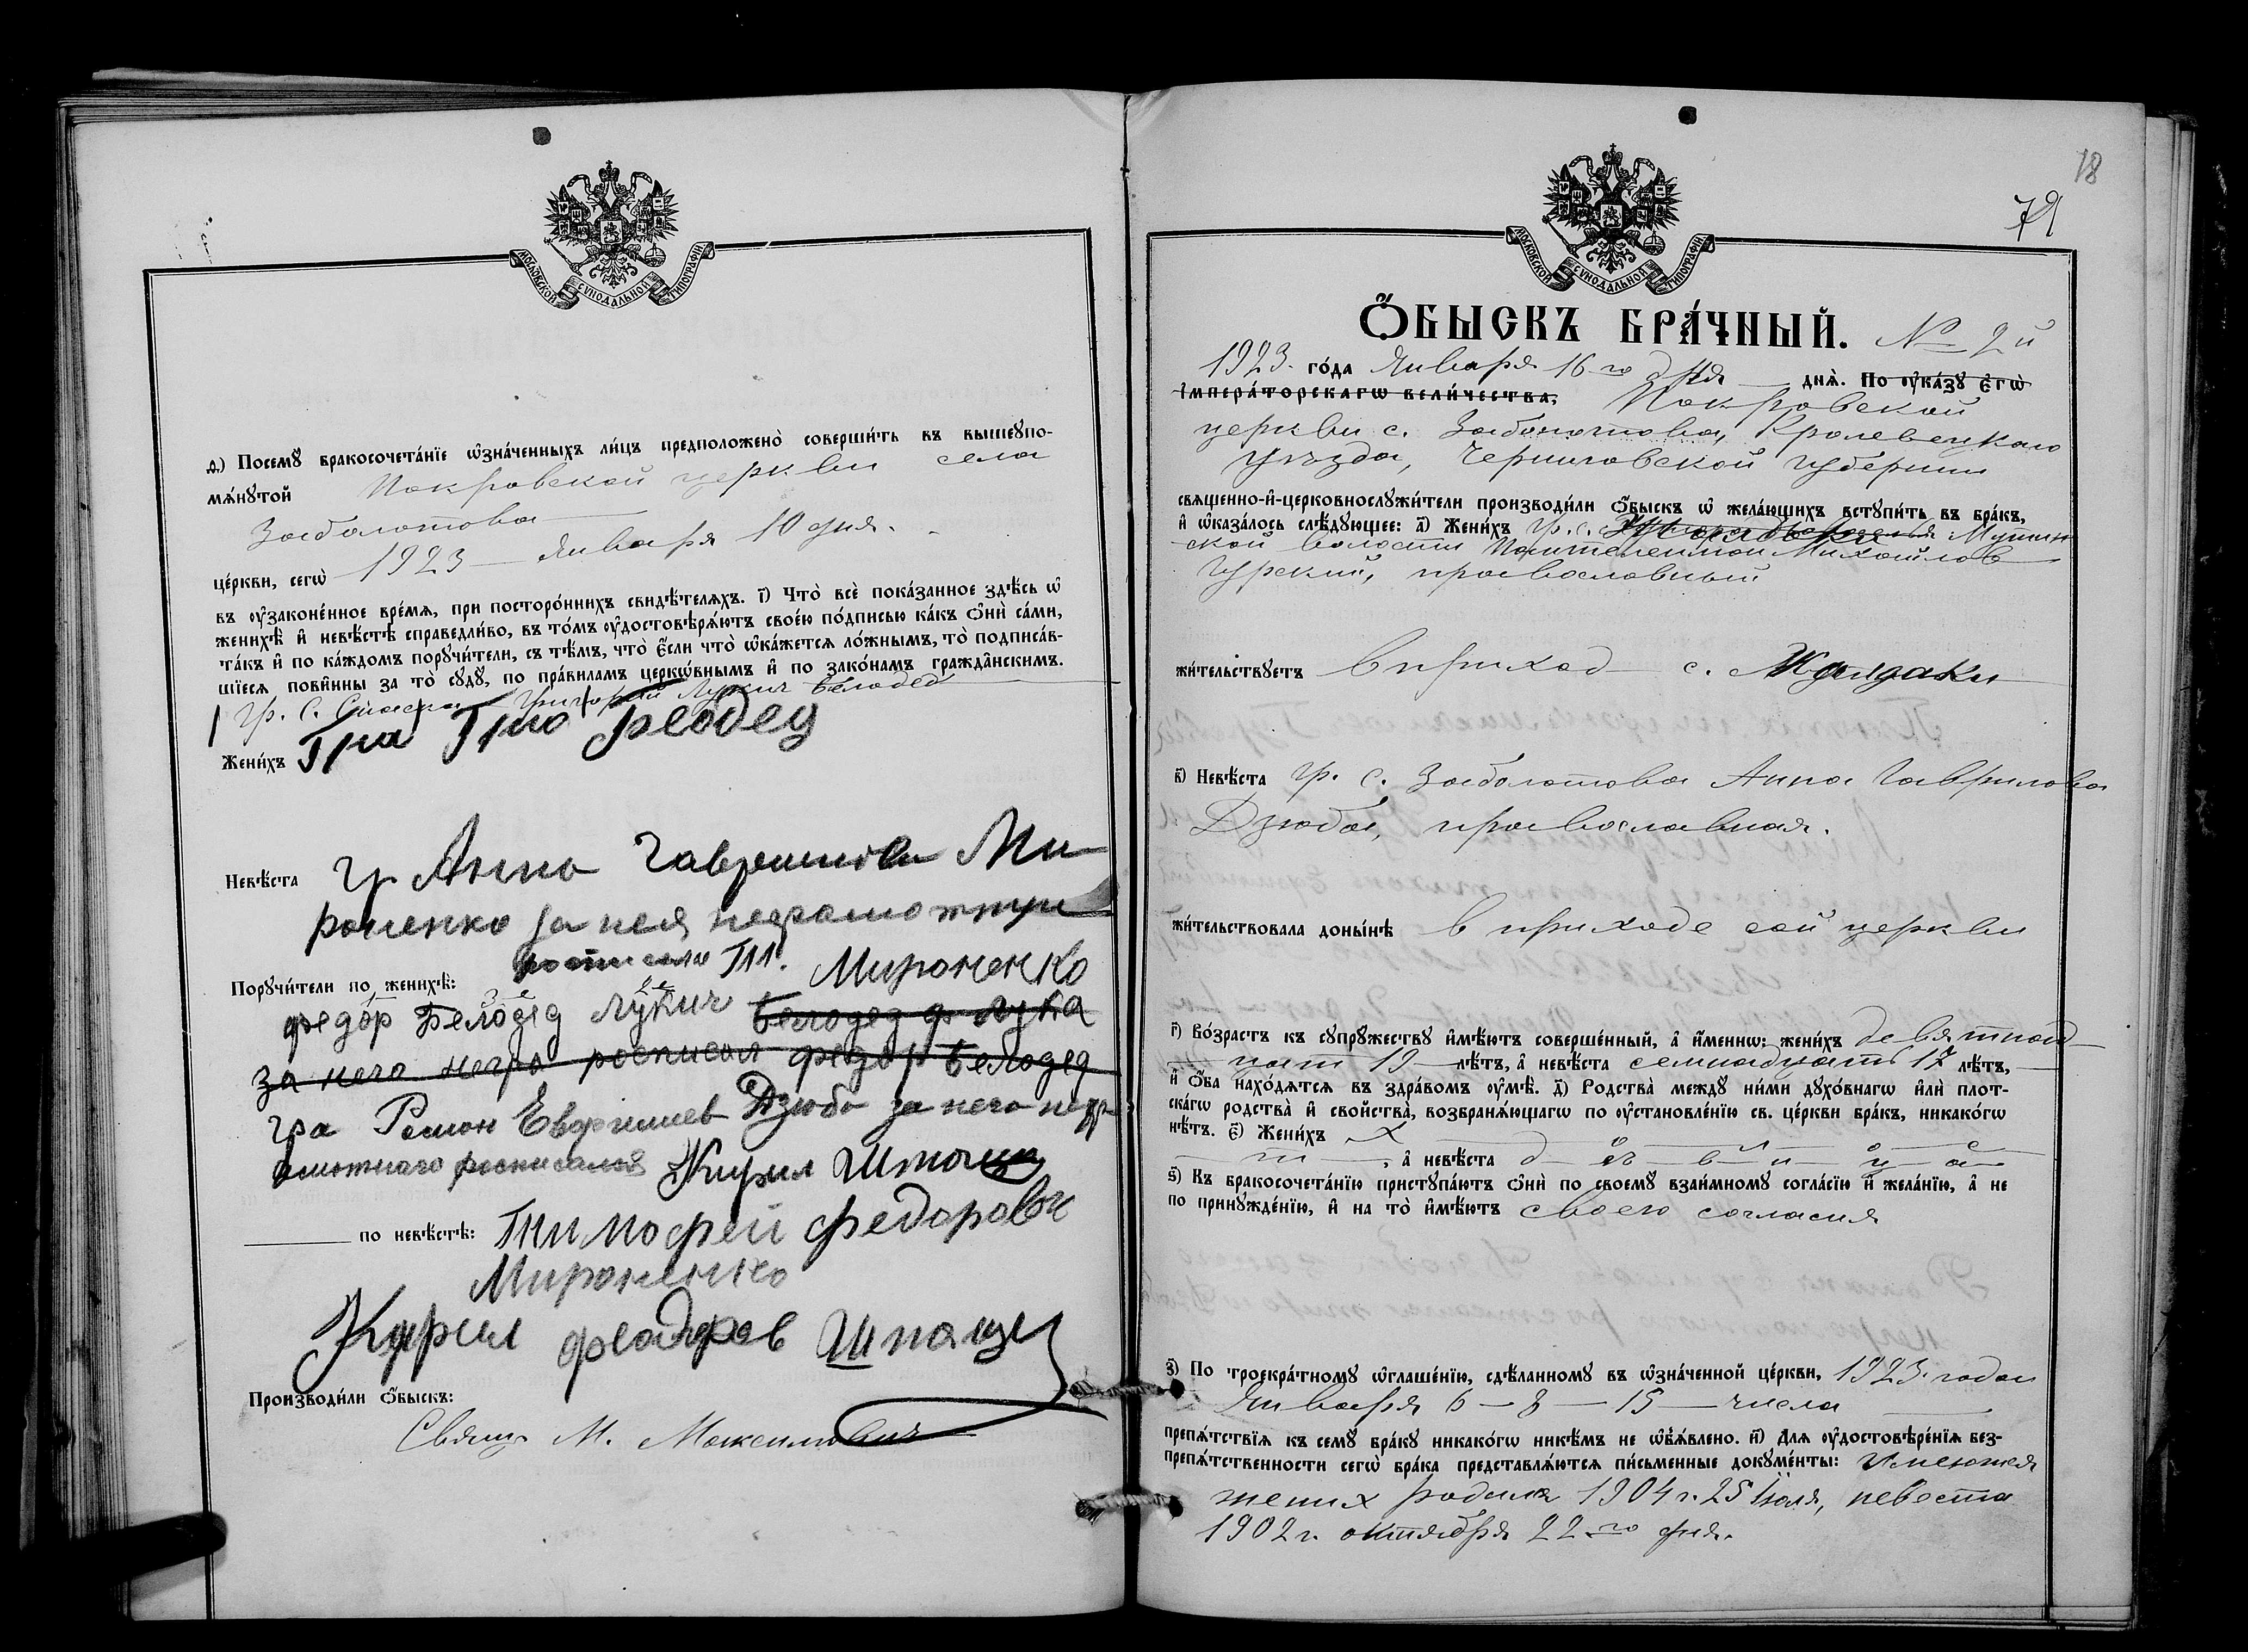 МОСКОВСКОЙ СѴНОДАЛЬНОЙ ТИПОГРАФІИ
д҃.) Посемꙋ̀ бракосочета́нїе ѡ҆зна́ченныхъ ли́цъ предположено̀ соверши́ть въ вышеꙋпо-
мѧ́нꙋтой Покровской церкви села
Заболотова
це́ркви, сегѡ̀ 1923 — Января 10 дня.
въ ᲂу҆законе́нное вре́мѧ, при посторо́ннихъ свидѣ́телѧхъ. і҃) Что̀ всѐ пока́занное здѣ́сь ѡ҆
женихѣ̀ и҆ невѣ́стѣ справедли́во, въ то́мъ ᲂу҆достовѣрѧ́ютъ свое́ю по́дписью ка́къ ѻ҆нѝ са́ми,
та́къ и҆ по ка́ждомъ порꙋчи́тели, съ тѣ́мъ, что̀ є҆́сли что̀ ѡ҆ка́жетсѧ ло́жнымъ, то̀ подписа́в-
шїесѧ пови́нны за то̀ сꙋдꙋ̀, по пра́виламъ церко́внымъ и҆ по зако́намъ гражда́нскимъ.
Гр. с. Спаска Григорий Лукич Белодед
Жени́хъ
Невѣ́ста Гр Анна Гавриилова Ми-
роненко за нея неграмотную
росписался Т. Мироненко
Порꙋчи́тели по женихѣ̀:
Федор Белодед Лукич Белодед Ф Лука
за него негра росписал Федор Белодед
гра Роман Дзюба за него негр
амотного росписался Кирил
по невѣ́стѣ: Тимофей Федоровч
Мироненко
Кирил Федоров
Производи́ли ѻ҆́быскъ:
Свящ. М. Максимович
18
79
МОСКОВСКОЙ СѴНОДАЛЬНОЙ ТИПОГРАФІИ
Ѻ҆́БЫСКЪ БРА́ЧНЫЙ. № 2й
1923. го́да Января 16-го дня днѧ̀. По ᲂу҆ка́зꙋ є҆гѡ̀
і҆мпера́торскагѡ вели́чества, Покровской
церкви с. Заболотова, Кролевецкого
уъзда, Черниговской губернии
свѧще́нно-и҆-церковнослꙋжи́тели производи́ли ѻ҆́быскъ ѡ҆ жела́ющихъ встꙋпи́ть въ бра́къ,
и҆ ѡ҆каза́лось слѣ́дꙋющее: а҃) Жени́хъ гр. с. Мутин
ской волости Пантелеймон Михайлов
Гурский, православный
жи́тельствꙋетъ в приход с. Жолдаки
в҃) Невѣ́ста гр. с. Заболотова Анна Гаврилова
Дзюба, православная.
жи́тельствовала доны́нѣ в приходе сой церкви
г҃) Во́зрастъ къ сꙋпрꙋ́жествꙋ и҆мѣ́ютъ соверше́нный, а҆ и҆́меннѡ: жени́хъ девятнад-
цати 19 — лѣ́тъ, а҆ невѣ́ста семнадцати 17 лѣ́тъ,
и҆ ѻ҆́ба нахо́дѧтсѧ въ здра́вомъ ᲂу҆мѣ̀. д҃) Родства̀ междꙋ̀ ни́ми дꙋхо́внагѡ и҆лѝ плот-
ска́гѡ родства̀ и҆ сво́йства̀, возбранѧ́ющагѡ по ᲂу҆становле́нїю св. це́ркви бра́къ, никако́гѡ
нѣ́тъ. є҃) Жени́хъ х — о — л — о — с
т —, а҆ невѣ́ста д — ѣ — в — и — ц — а
ѕ҃) Къ бракосочета́нїю пристꙋпа́ютъ ѻ҆нѝ по своемꙋ̀ взаи́мномꙋ согла́сїю и҆ жела́нїю, а҆ не
по принꙋжде́нїю, и҆ на то̀ и҆мѣ́ютъ своего согласия
з҃) По троекра́тномꙋ ѡ҆глаше́нїю, сдѣ́ланномꙋ въ ѡ҆зна́ченной це́ркви, 1923. года
Января 6 — 8 — 15 — числа
препѧ́тствїѧ къ семꙋ̀ бра́кꙋ никако́гѡ никѣ́мъ не ѡ҆б̾ѧ́влено. и҃) Длѧ ᲂу҆достовѣре́нїѧ без-
препѧ́тственности сегѡ̀ бра́ка представлѧ́ютсѧ пи́сьменные докꙋме́нты: Имеются
жених родился 1904 г. 25 Июля, невеста
1902 г. октября 22-го дня.